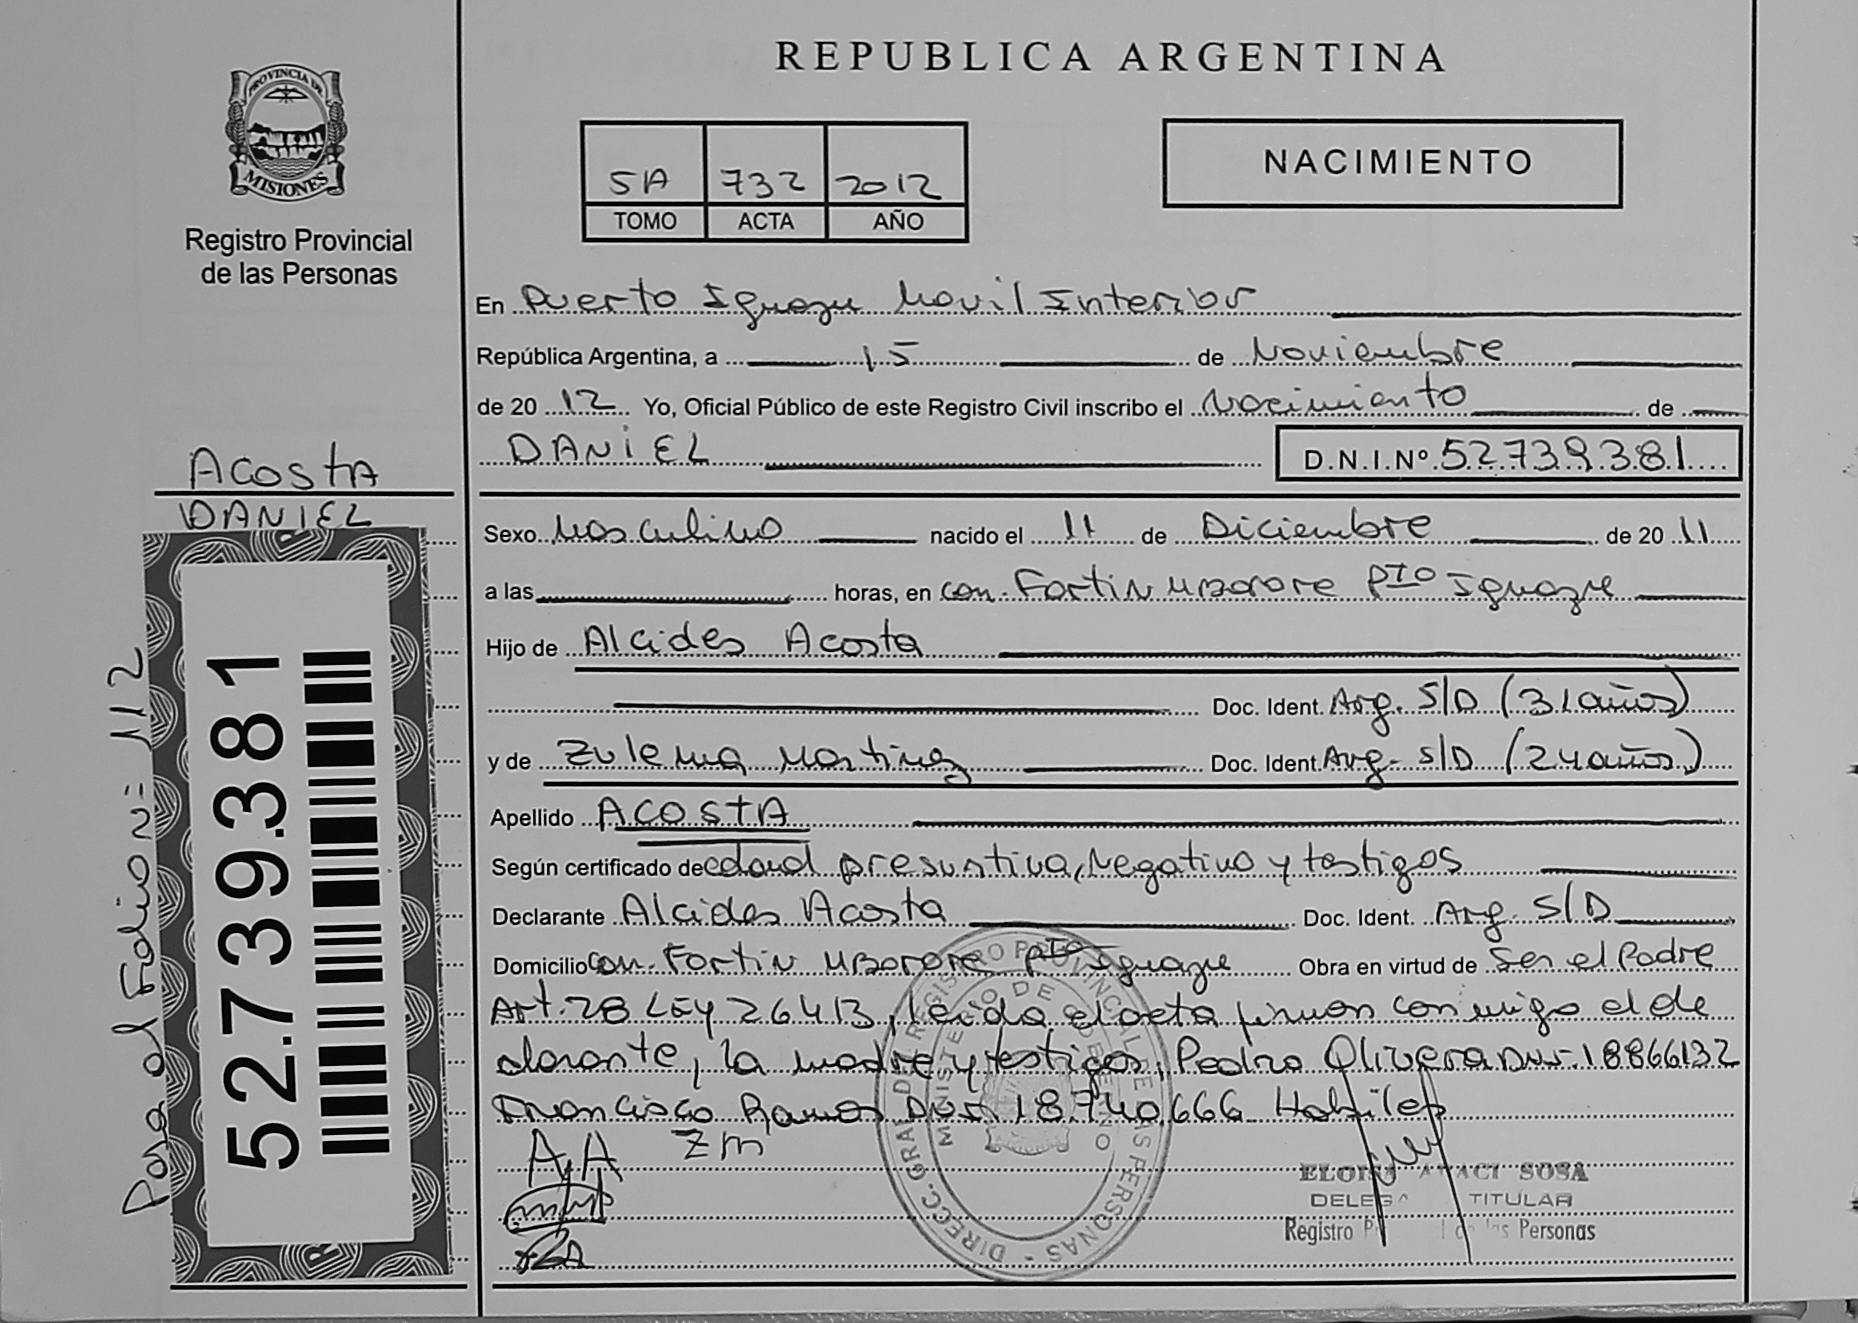 REPUBLICA ARGENTINA
PROVINCIA DE
MISIONES
Registro Provincial
de las Personas
5A 732 2012
TOMO ACTA AÑO
NACIMIENTO
En Puerto Iguazu Movil Interior
República Argentina, a 15 de Noviembre
de 2012 Yo, Oficial Público de este Registro Civil inscribo el Nacimiento de
DANIEL D.N.I.Nº 52.739.381
ACOSTA
DANIEL
Sexo Masculino nacido el 11 de Diciembre de 2011
a las horas, en con. Fortin Mborore Pto Iguazu
Hijo de Alcides Acosta
Doc. Ident. Arg. S/D (31 años)
y de Zulema Martinez Doc. Ident. Arg. S/D (24 años)
Apellido ACOSTA
Según certificado de edad presuntiva, Negativo y testigos
Declarante Alcides Acosta Doc. Ident. Arg. S/D
Domicilio con. Fortin Mborore Pto Iguazu Obra en virtud de Ser el Padre
Art. 28 LEY 26413, leida el acta firman conmigo el de
clarante, la madre y testigos, Pedro Olivera DNI. 18866132
Francisco Ramos DNI 18.740.666 Habiles
A,A ZM
ELOISA SOSA
DELEG TITULAR
Registro P las Personas
DIRECC. GRAL. DE REGISTRO PROVINCIAL DE LAS PERSONAS
MINISTERIO DE GOBIERNO
52.739.381
Pasa al Folio N= 112